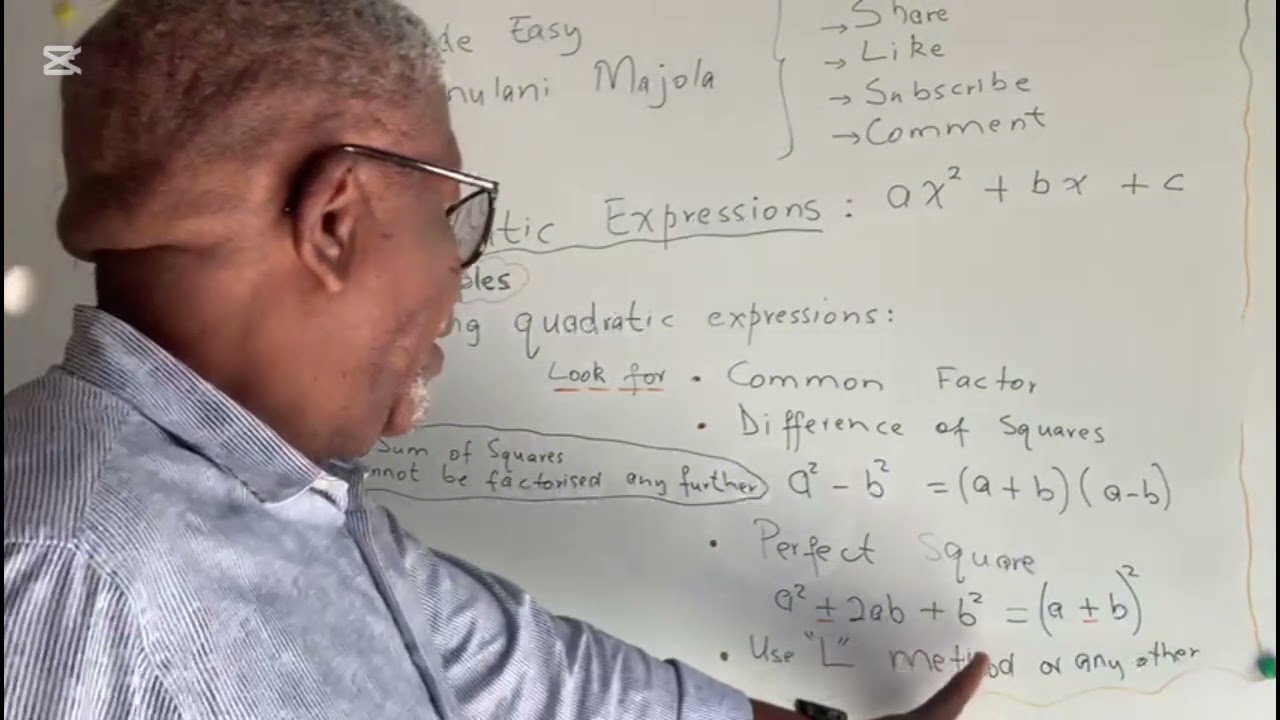 Easy
Majola
→ Share
→ Like
→ Subscribe
→ Comment
Expressions : ax² + bx + c
quadratic expressions:
Look for • Common Factor
• Difference of Squares
Sum of Squares
be factorised any further
a² - b² = (a + b)(a-b)
• Perfect Square
a² ± 2ab + b² = (a ± b)²
• Use "L" method or any other